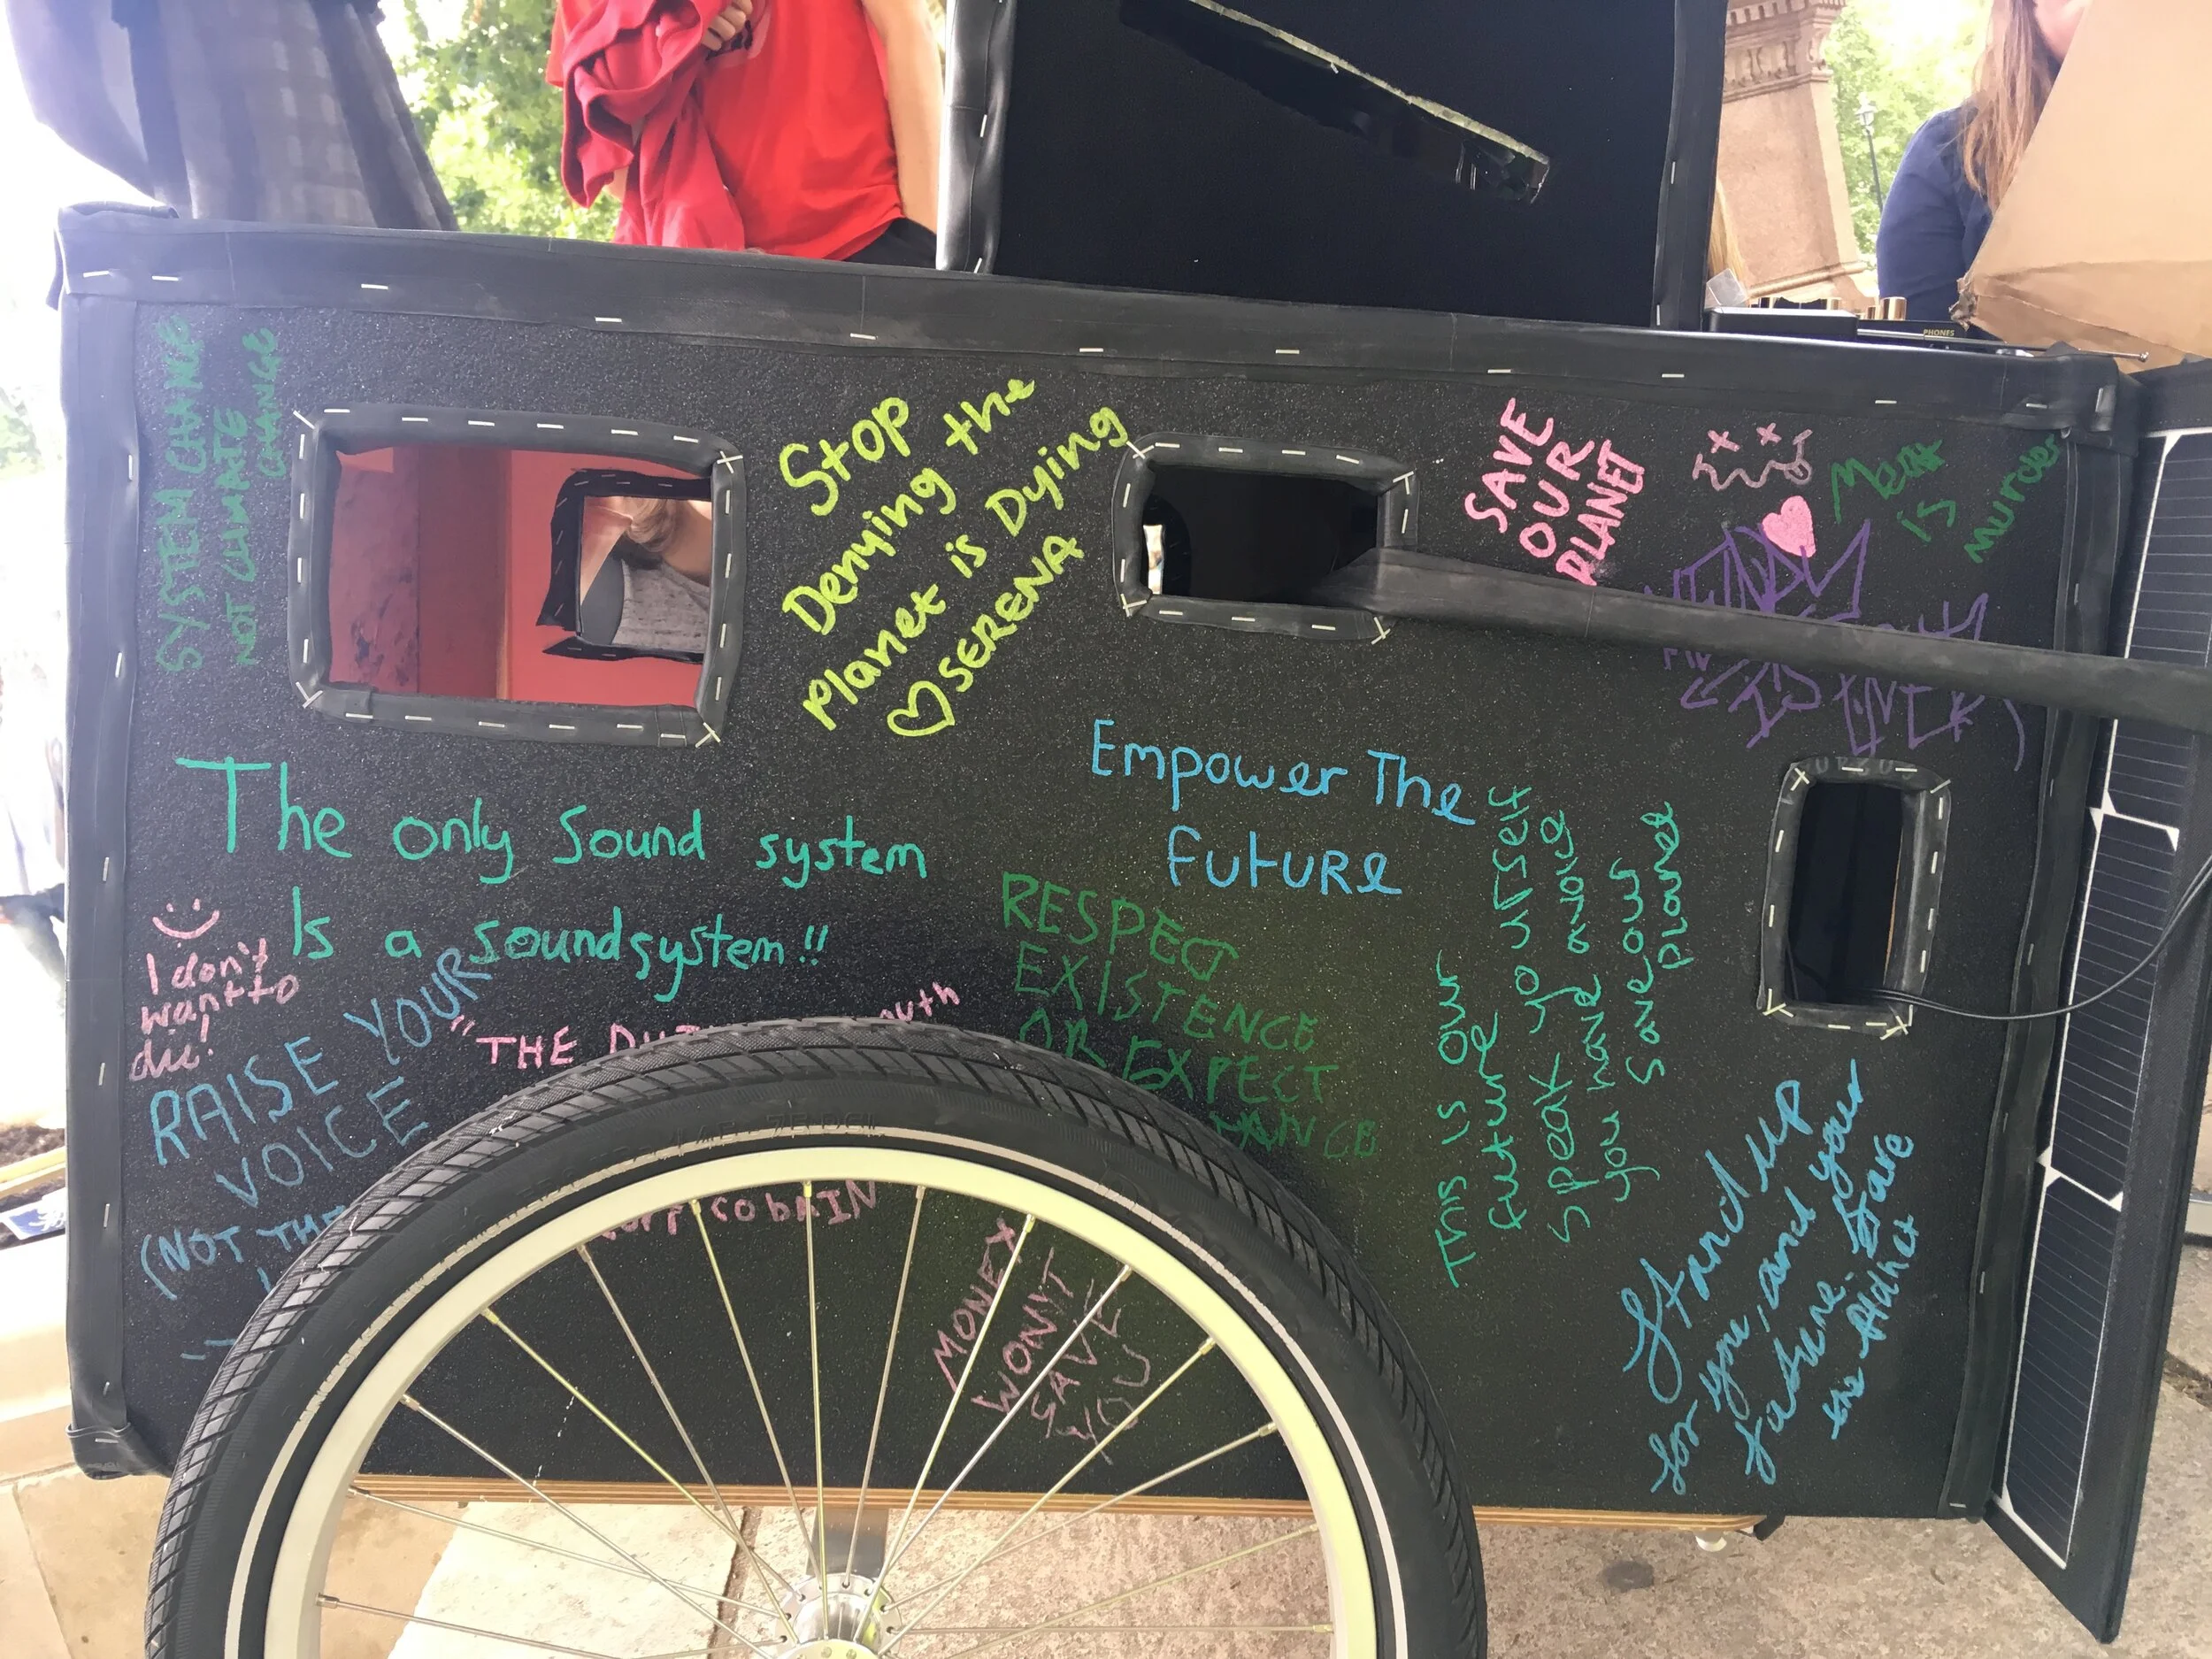 PHONES
SYSTEM CHANGE
NOT CLIMATE
CHANGE
Stop
Denying the
Planet is Dying
♡ SERENA
SAVE
OUR
PLANET
Meat
is
Murder
The only sound system
Is a soundsystem!!
Empower The
Future
I don't
want to
die!
RAISE YOUR
VOICE
(NOT THE
"THE
outh
cobAIN
RESPECT
EXISTENCE
OR EXPECT
MONEY
WON'T
SAVE
YOU
This is our
future
speak yo urself
you have a voice
Save our
planet
Stand up
for you, and your
future.